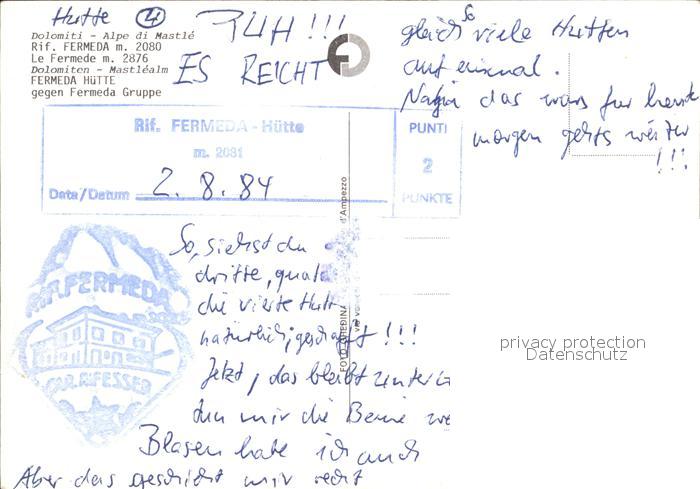 Hütte ④
PUH!!!
ES REICHT
Dolomiti - Alpe di Mastlé
Rif. FERMEDA m. 2080
Le Fermede m. 2876
Dolomiten - Mastléalm
FERMEDA HÜTTE
gegen Fermeda Gruppe
So
gleich viele Hütten
auf einmal.
Naja das wars für heute
morgen gehts weiter
!!!
Rif. FERMEDA - Hütte
m. 2081
Data/Datum 2.8.84
PUNTI
2
PUNKTE
RIF. FERMEDA
So, siehst du
dritte,
die vierte Hütt
natürlich, geschafft!!!
Jetzt, das bleibt unter
mir die Beine we
Blasen habe ich auch
Aber das geschieht mir recht
d'Ampezzo
FOTO GHEDINA
privacy protection
Datenschutz